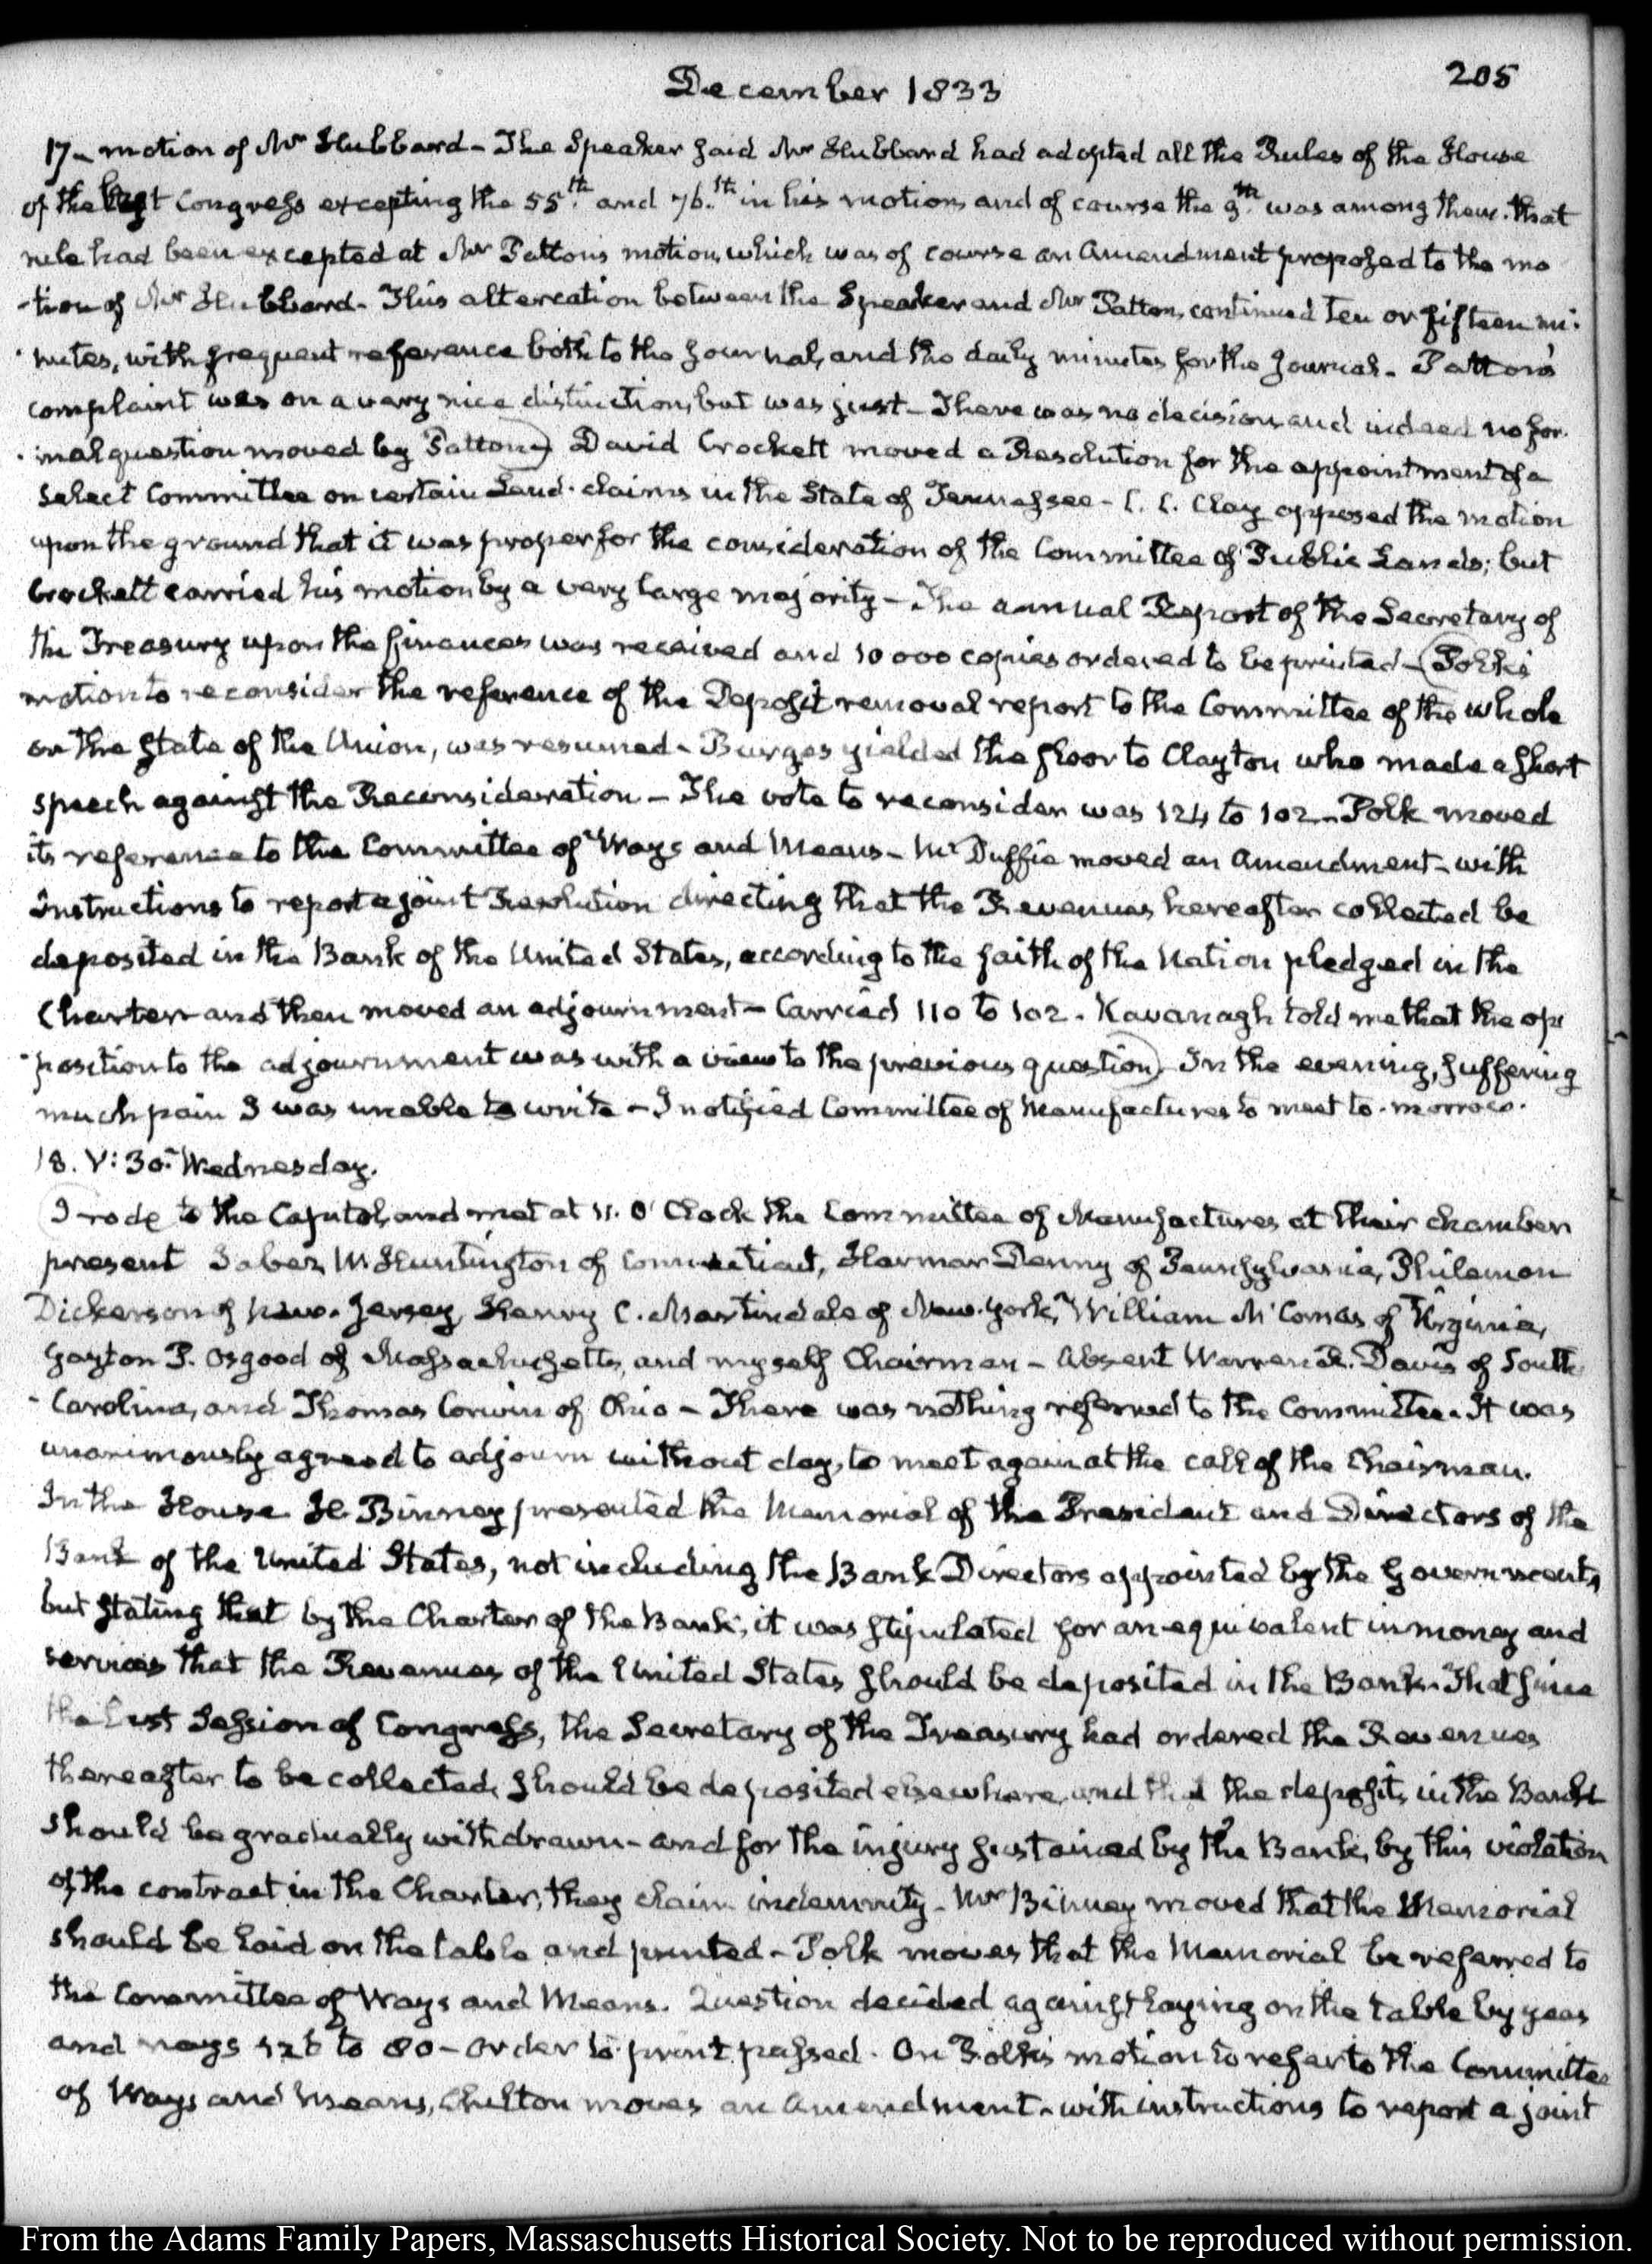 December 1833
205
17 — motion of Mr Hubbard — The Speaker said Mr Hubbard had adopted all the Rules of the House
of the last Congress excepting the 55th. and 76.th in his motion, and of course the 9th. was among them. that
rule had been excepted at Mr Patton's motion, which was of course an Amendment proposed to the mo
-tion of Mr Hubbard — This altercation between the Speaker and Mr Patton, continued ten or fifteen mi-
-nutes, with frequent reference both to the Journal, and the daily minutes for the Journal — Patton's
complaint was on a very nice distinction, but was just — There was no decision, and indeed no for-
-mal question moved by Patton — David Crockett moved a Resolution for the appointment of a
Select Committee on certain Land-claims in the State of Tennessee — C. C. Clay opposed the motion
upon the ground that it was proper for the consideration of the Committee of Public Lands; but
Crockett carried his motion by a very large majority — The annual Report of the Secretary of
the Treasury upon the finances was received and 10 000 copies ordered to be printed — Polk's
motion to reconsider the reference of the Deposit removal report to the Committee of the whole
on the State of the Union, was resumed — Burges yielded the floor to Clayton who made a short
speech against the Reconsideration — The vote to reconsider was 124 to 102 — Polk moved
its reference to the Committee of Ways and Means — McDuffie moved an Amendment — with
Instructions to report a joint Resolution directing that the Revenues hereafter collected be
deposited in the Bank of the United States, according to the faith of the Nation pledged in the
Charter — and then moved an adjournment — Carried 110 to 102. Kavanagh told me that the op
-position to the adjournment was with a view to the previous question — In the evening, suffering
much pain I was unable to write — I notified Committee of Manufactures to meet to-morrow.
18. V: 30. Wednesday.
I rode to the Capitol, and met at 11. O'Clock the Committee of Manufactures at their chamber
present Jabez W Huntington of Connecticut, Harmar Denny of Pennsylvania, Philemon
Dickerson of New-Jersey, Henry C. Martindale of New-York, William McComas of Virginia,
Gayton P. Osgood of Massachusetts, and myself Chairman — Absent Warren R. Davis of South
-Carolina, and Thomas Corwin of Ohio — There was nothing referred to the Committee. It was
unanimously agreed to adjourn without day, to meet again at the call of the Chairman.
In the House H. Binney presented the Memorial of the President and Directors of the
Bank of the United States, not including the Bank Directors appointed by the Government,
but stating that by the Charter of the Bank, it was stipulated for an equivalent in money and
services that the Revenues of the United States should be deposited in the Bank. That since
the last Session of Congress, the Secretary of the Treasury had ordered the Revenues
thereafter to be collected, should be deposited elsewhere, and that the deposits in the Bank
should be gradually withdrawn — and for the injury sustained by the Bank, by this violation
of the contract in the Charter, they claim indemnity — Mr Binney moved that the Memorial
should be laid on the table and printed — Polk moves that the Memorial be referred to
the Committee of Ways and Means. Question decided against laying on the table by yeas
and nays 126 to 80 — order to print passed. On Polk's motion to refer to the Committee
of Ways and Means, Chilton moves an Amendment — with instructions to report a joint
From the Adams Family Papers, Massachusetts Historical Society. Not to be reproduced without permission.